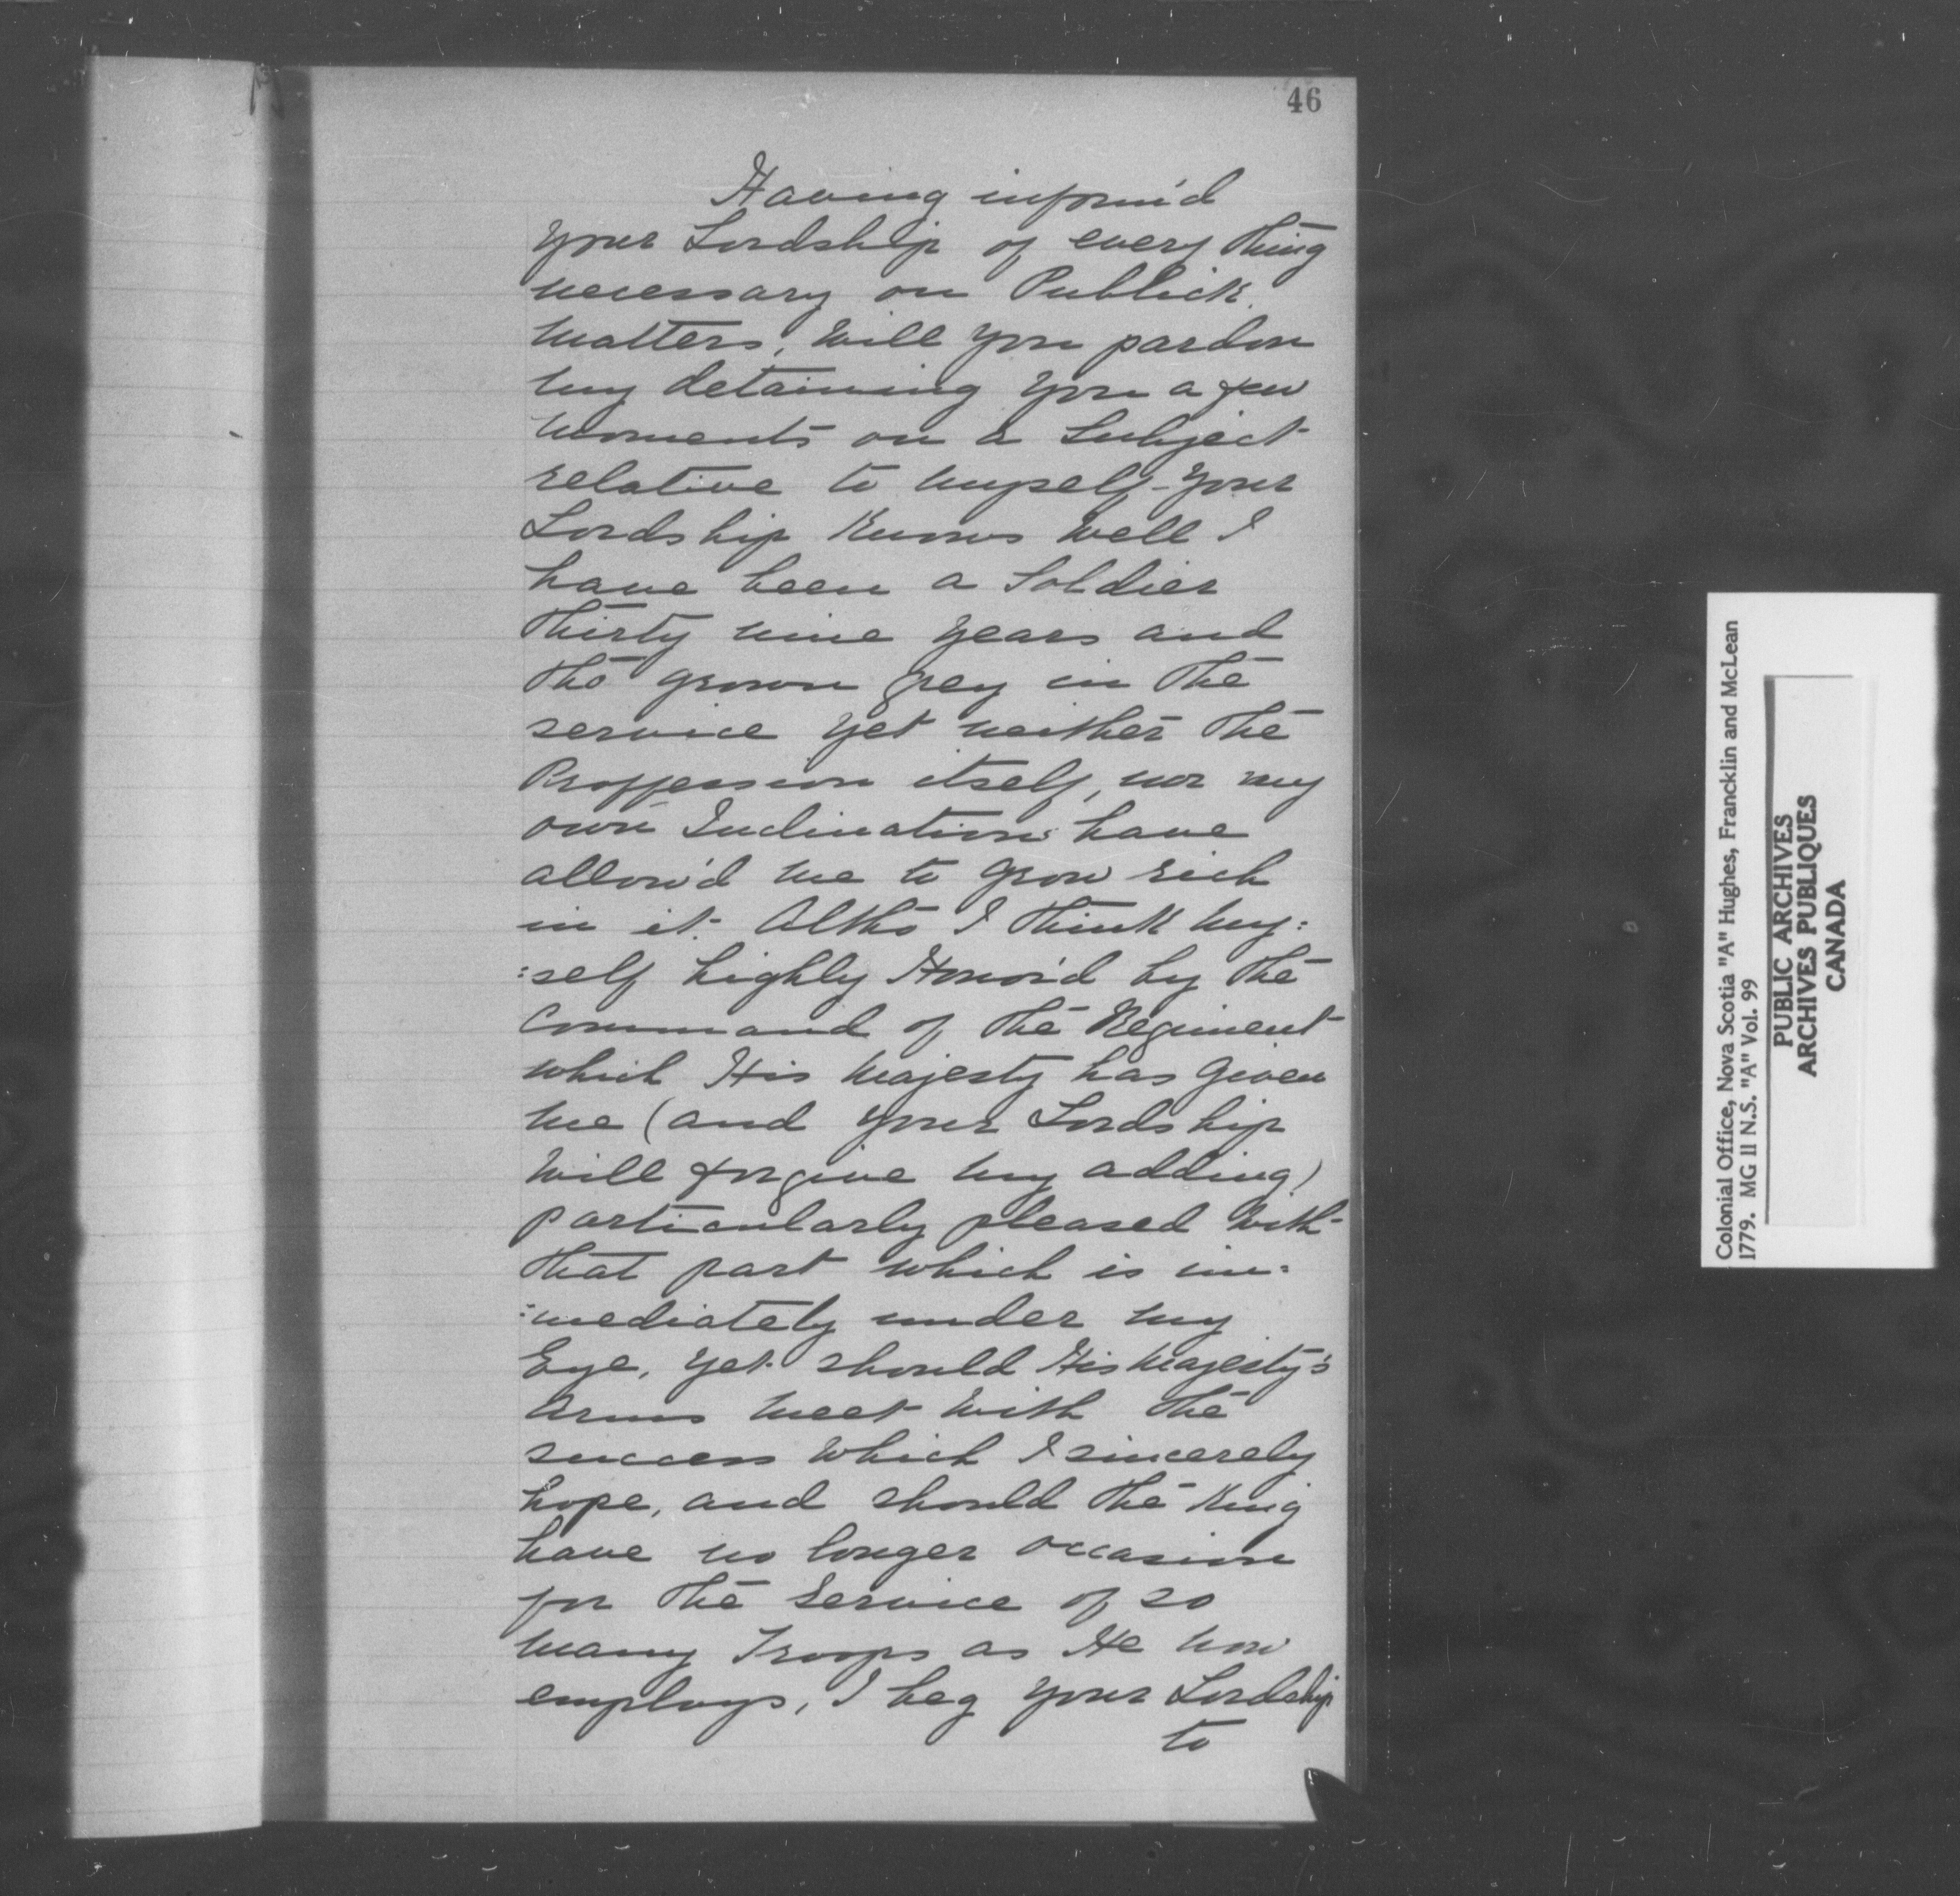 46
Having inform'd
your Lordship of every thing
necessary on Publick
matters, Will you pardon
my detaining you a few
moments on a Subject
relative to myself - your
Lordship Knows Well I
have been a Soldier
Thirty nine years and
tho' grown grey in the
service yet neither the
Proffession itself, nor my
own Inclinations have
allow'd me to grow rich
in it. Altho I think my:
:self highly Honor'd by the
Command of the Regiment
which His Majesty has given
me (and your Lordship
Will forgive my adding)
particularly pleased With
that part which is im:
:mediately under my
Eye, yet should His Majesty's
Arms meet With the
success Which I sincerely
hope, and should the King
have no longer occasion
for the Service of so
many Troops as He now
employs, I beg your Lordship
to
Colonial Office, Nova Scotia "A" Hughes, Francklin and McLean
1779. MG II N.S. "A" Vol. 99
PUBLIC ARCHIVES
ARCHIVES PUBLIQUES
CANADA